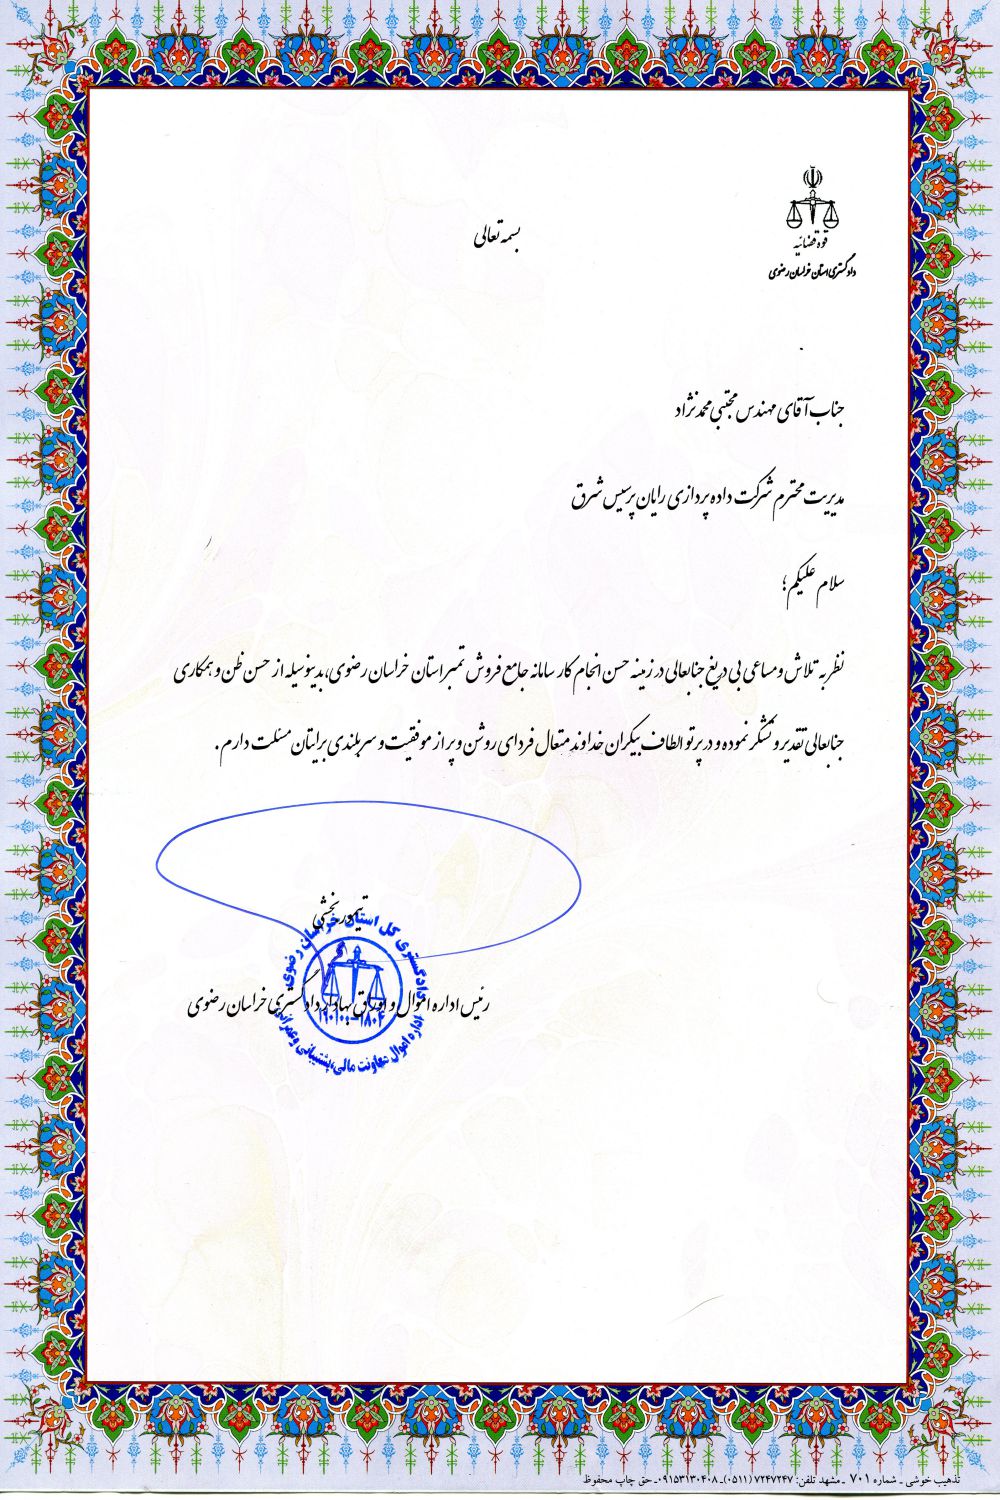 قوه قضائیه
دادگستری استان خراسان رضوی
بسمه تعالی
جناب آقای مهندس مجتبی محمدنژاد
مدیریت محترم شرکت داده پردازی رایان پرسیس شرق
سلام علیکم؛
نظر به تلاش و مساعی بی دریغ جنابعالی در زمینه حسن انجام کار سامانه جامع فروش تمبر استان خراسان رضوی، بدینوسیله از حسن ظن و همکاری
جنابعالی تقدیر و تشکر نموده و در پرتو الطاف بیکران خداوند متعال فردای روشن و پر از موفقیت و سربلندی برایتان مسئلت دارم.
تیمور بخشی
رئیس اداره اموال و اوراق بهادار دادگستری خراسان رضوی
دادگستری کل استان خراسان رضوی
اداره اموال معاونت مالی، پشتیبانی و
تذهیب خوشی - شماره ۷۰۱ - مشهد تلفن: ۷۲۴۷۲۴۷ (۰۵۱۱)- ۰۹۱۵۳۱۳۰۴۰۸- حق چاپ محفوظ